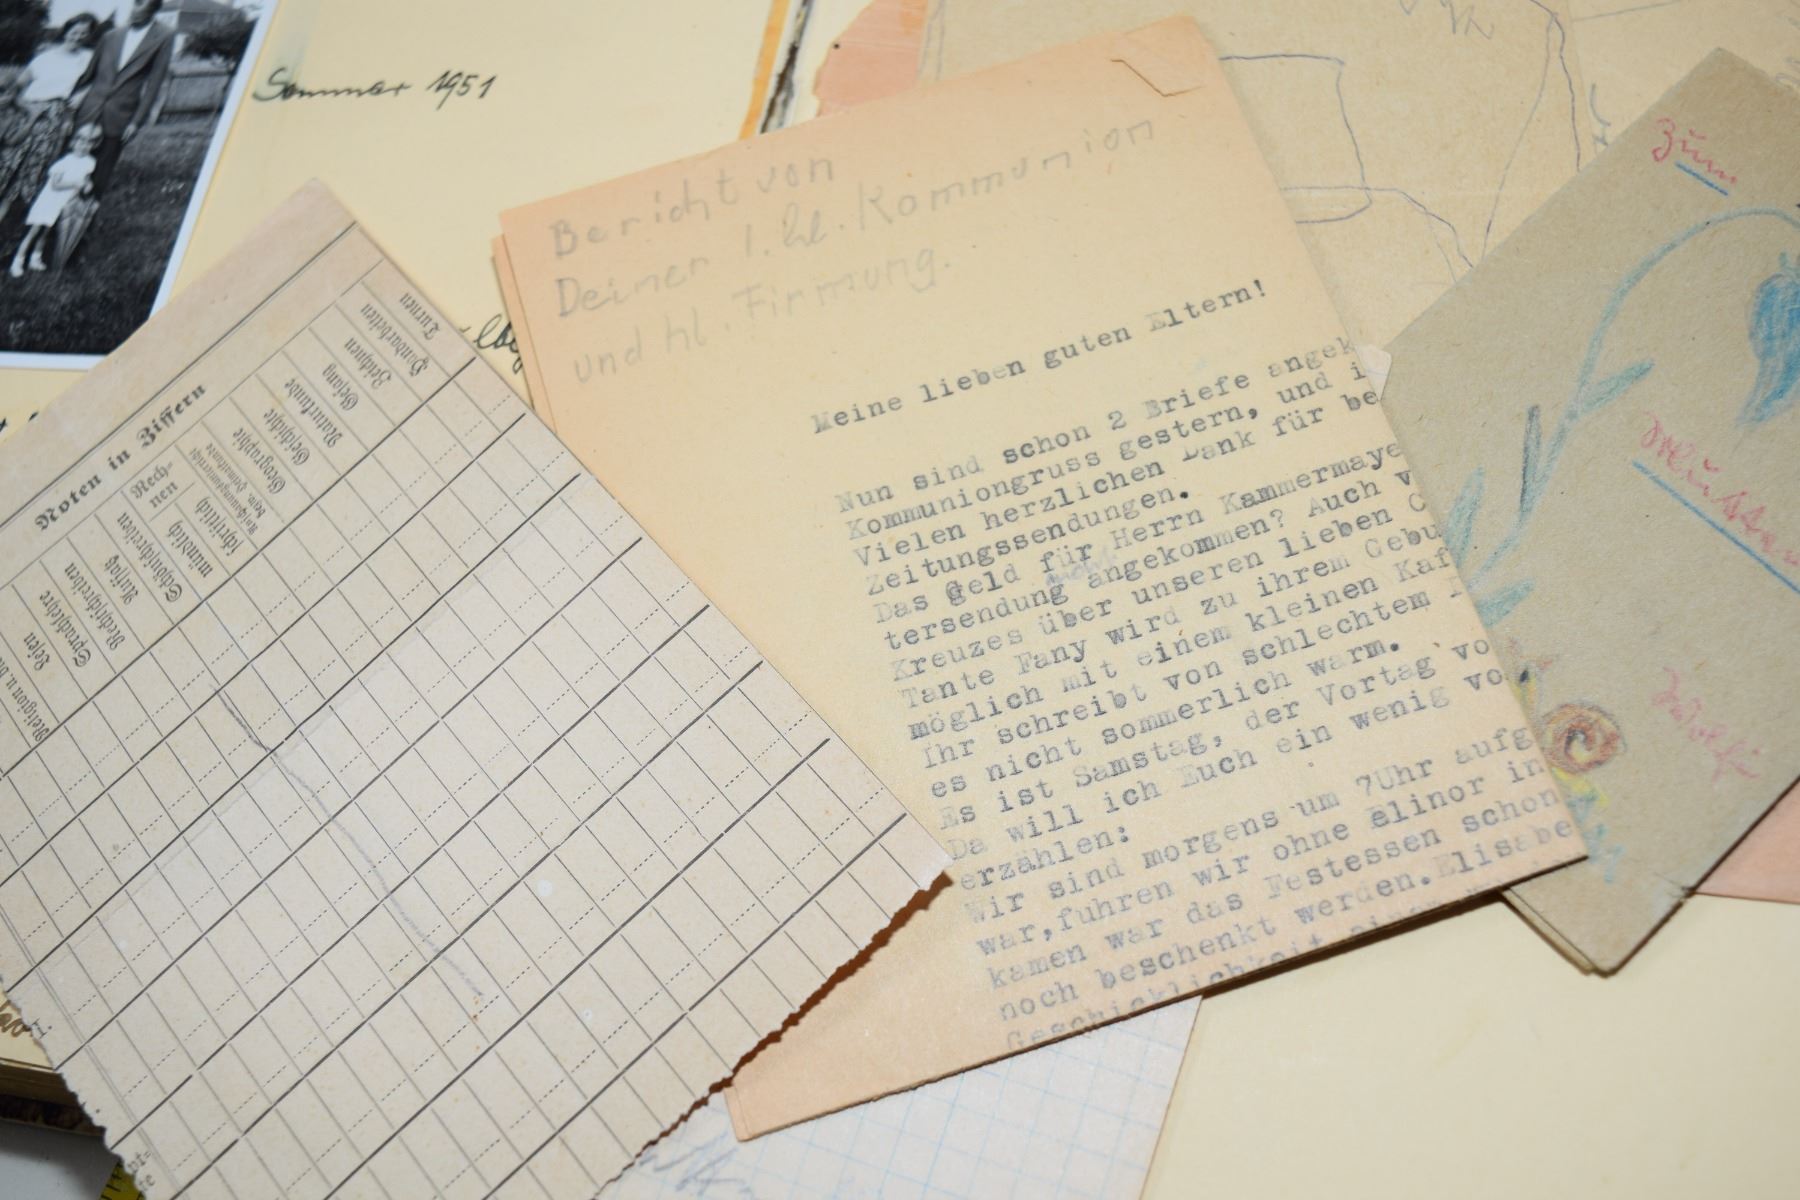 Sommer 1951
Bericht von
Deiner 1. hl. Kommunion
und hl. Firmung.
Meine lieben guten Eltern!
Nun sind schon 2 Briefe angek
Kommuniongruss gestern, und i
Vielen herzlichen Dank für be
Zeitungssendungen.
Das Geld für Herrn Kammermaye
tersendung angekommen? Auch v
Kreuzes über unseren lieben
Tante Fany wird zu ihrem Gebu
möglich mit einem kleinen Kaf
Ihr schreibt von schlechtem
es nicht sommerlich warm.
Es ist Samstag, der Vortag vo
Da will ich Euch ein wenig vo
erzählen:
Wir sind morgens um 7Uhr aufg
war, fuhren wir ohne Elinor in
kamen war das Festessen schon
noch beschenkt werden. Elisabe
Geschicklichkeit einer
Noten in Ziffern
Religion u.
Lesen
Sprachlehre
Rechtschreiben
Aufsatz
Schönschreiben
Rech-
nen
mündlich
schriftlich
Geographie
Geschichte
Naturkunde
Gesang
Zeichnen
Handarbeiten
Turnen
Zum
Wolfi